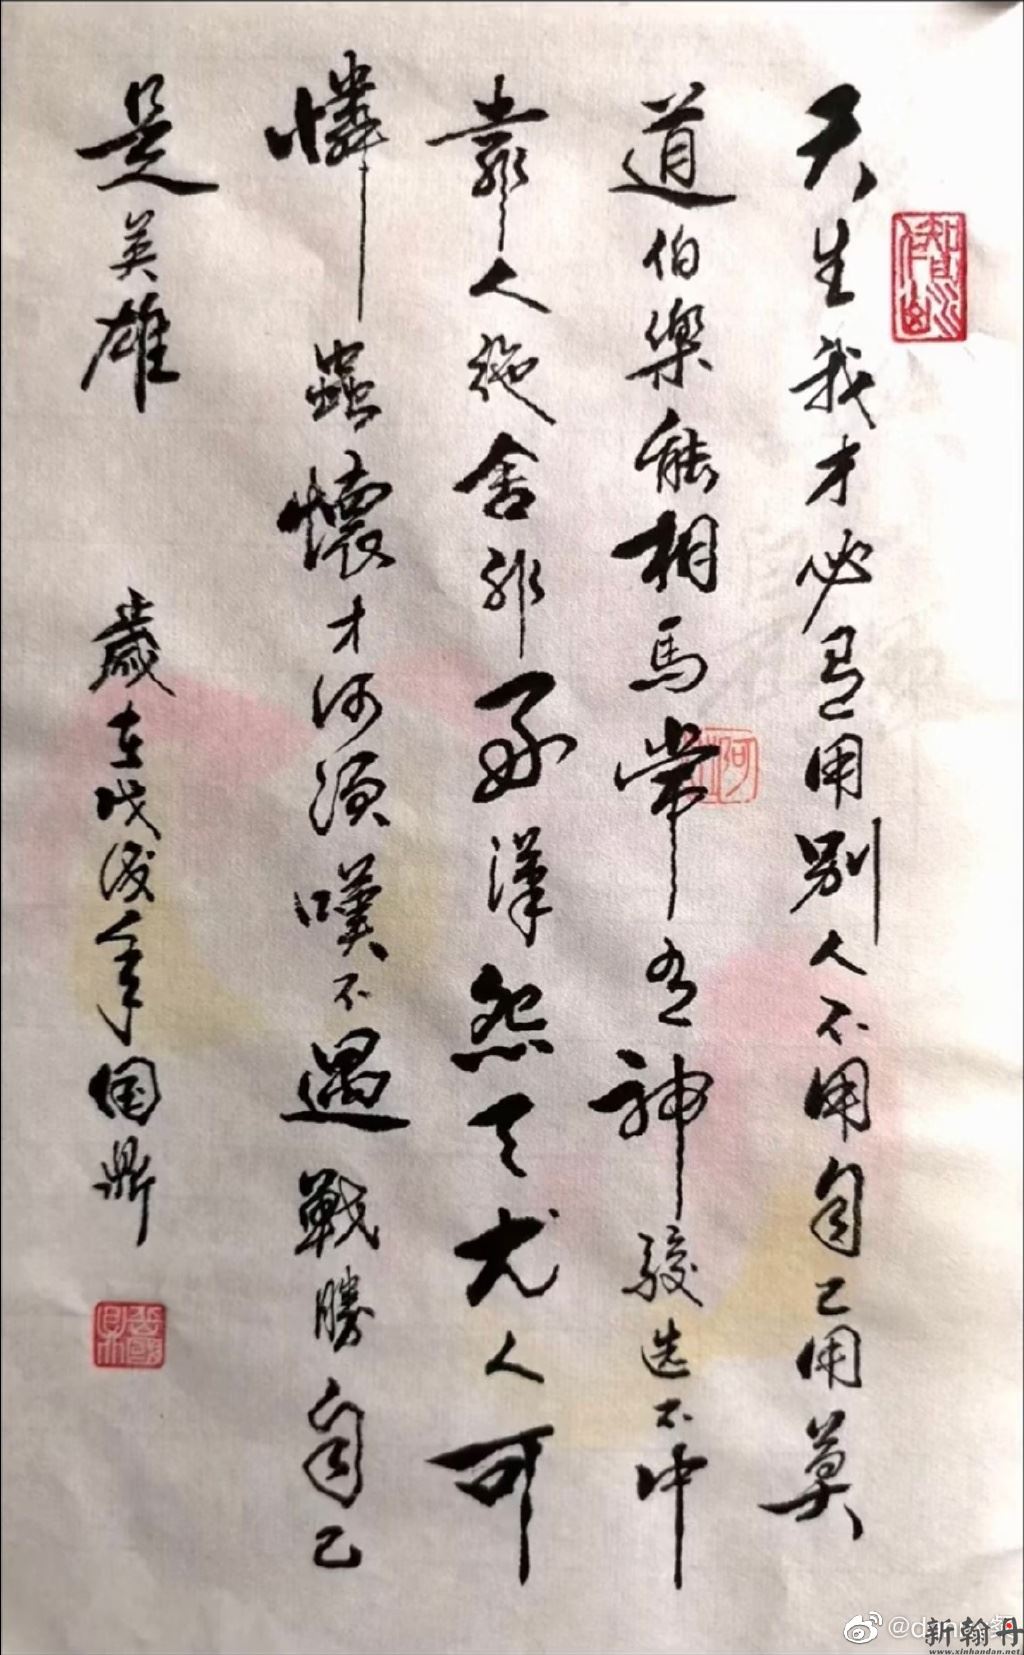 天生我才必有用別人不用自己用莫
道伯樂能相馬常有神駿選不中
靠人施舍非好漢怨天尤人可
憐蟲懷才何須嘆不遇戰勝自己
是英雄
歲在戊戌年國鼎
新翰丹
www.xinhandan.net